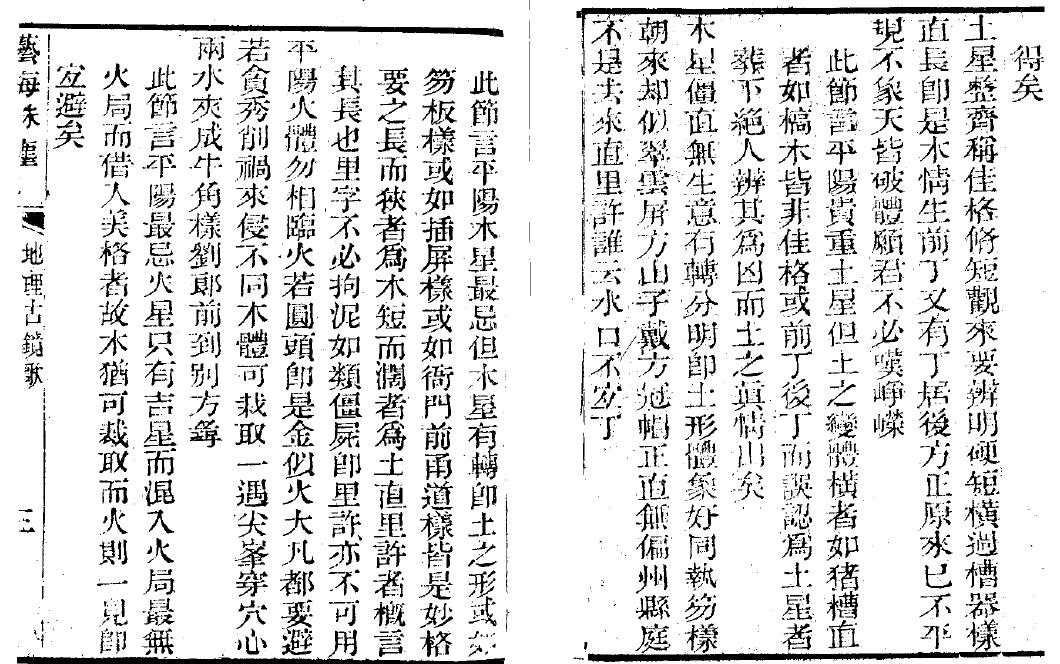 得矣
土星整齊稱佳格脩短觀來要辨明硬短橫過槽器樣
直長卽是木情生前丁又有丁居後方正原來已不平
現不象天皆破體願君不必嘆崢嶸
此節言平陽貴重土星但土之變體橫者如猪槽直
者如槁木皆非佳格或前丁後丁而誤認爲土星者
葬下絕人辨其爲凶而土之眞情出矣
木星僵直無生意有轉分明卽土形體象好同執笏樣
朝來却似翠雲屏方山子戴方冠帽正直無偏州縣庭
不是去來直里許誰云水口不宜丁
此節言平陽木星最忌但木星有轉卽土之形或如
笏板樣或如插屏樣或如衙門前甬道樣皆是妙格
要之長而狹者爲木短而濶者爲土直里許者槪言
其長也里字不必拘泥如類僵屍卽里許亦不可用
平陽火體勿相臨火若圓頭卽是金似火大凡都要避
若貪秀削禍來侵不同木體可裁取一遇尖峯穿穴心
兩水夾成牛角樣劉郞前到別方尋
此節言平陽最忌火星只有吉星而混入火局最無
火局而借入美格者故木猶可裁取而火則一見卽
宜避矣
藝海珠塵
地理古鏡歌
三